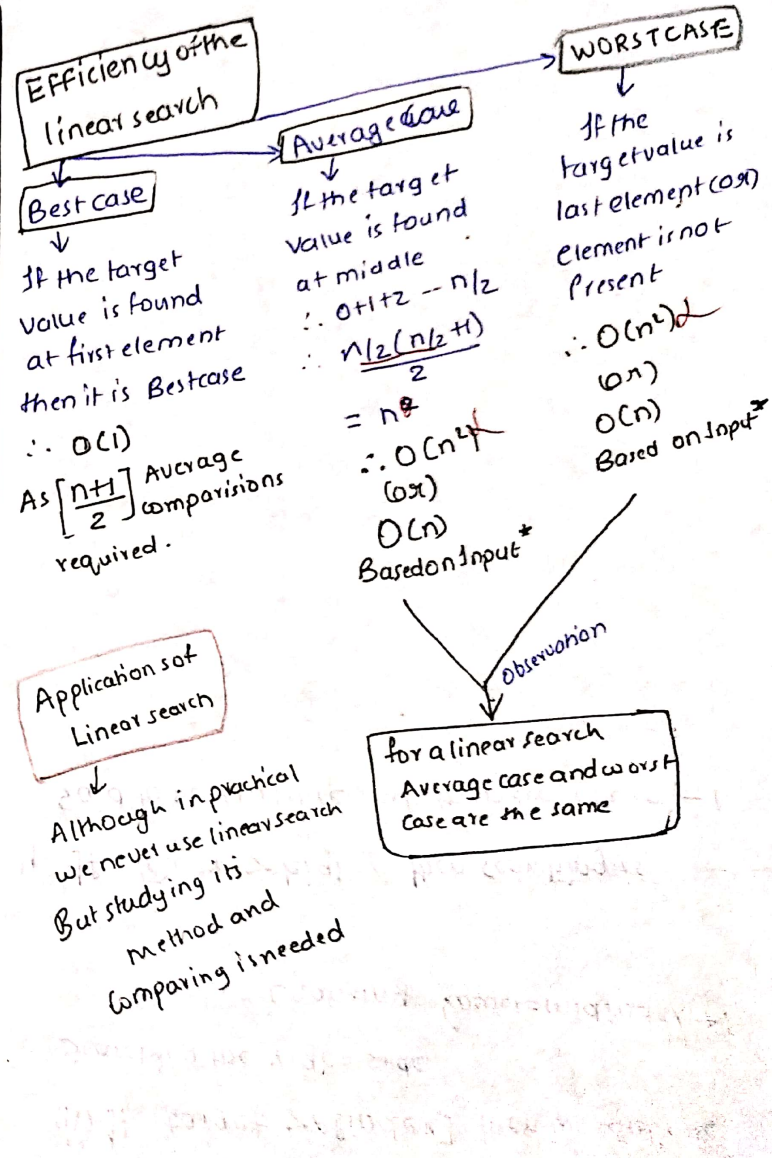 Efficiency of the
linear search
Best case
If the target
value is found
at first element
then it is Bestcase
∴ O(1)
As [n+1/2] Average
comparisions
required.
Average Case
If the target
value is found
at middle
∴ 0+1+2 -- n/2
∴ n/2(n/2+1)
2
= n²
∴ O(n²)
(or)
O(n)
Based on Input*
WORSTCASE
If the
target value is
last element (or)
element is not
Present
∴ O(n²)
(or)
O(n)
Based on Input*
Observation
for a linear search
Average case and worst
case are the same
Applications of
Linear search
Although in practical
we never use linear search
But studying its
method and
comparing is needed